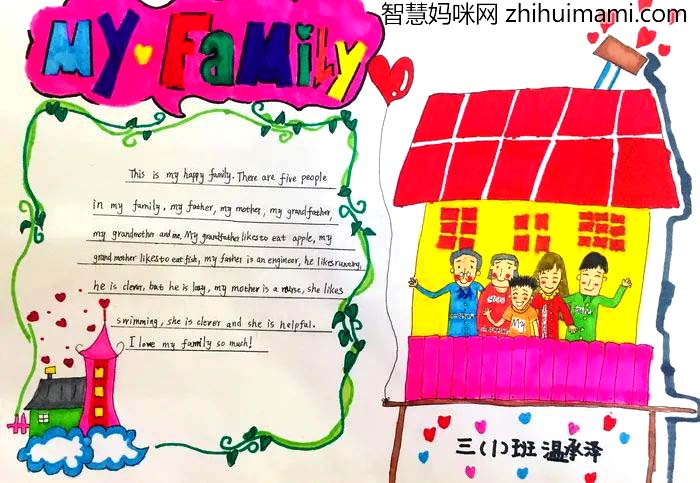 智慧妈咪网 zhihuimami.com
MY FaMily
This is my happy family. There are five people
in my family, my father, my mother, my grandfather,
my grandmother and me. My grandfather likes to eat apple, my
grand mother likes to eat fish, my father is an engineer, he likes running,
he is clever, but he is lazy, my mother is a nurse, she likes
swimming, she is clever and she is helpful.
I love my family so much!
三(1)班 温承泽